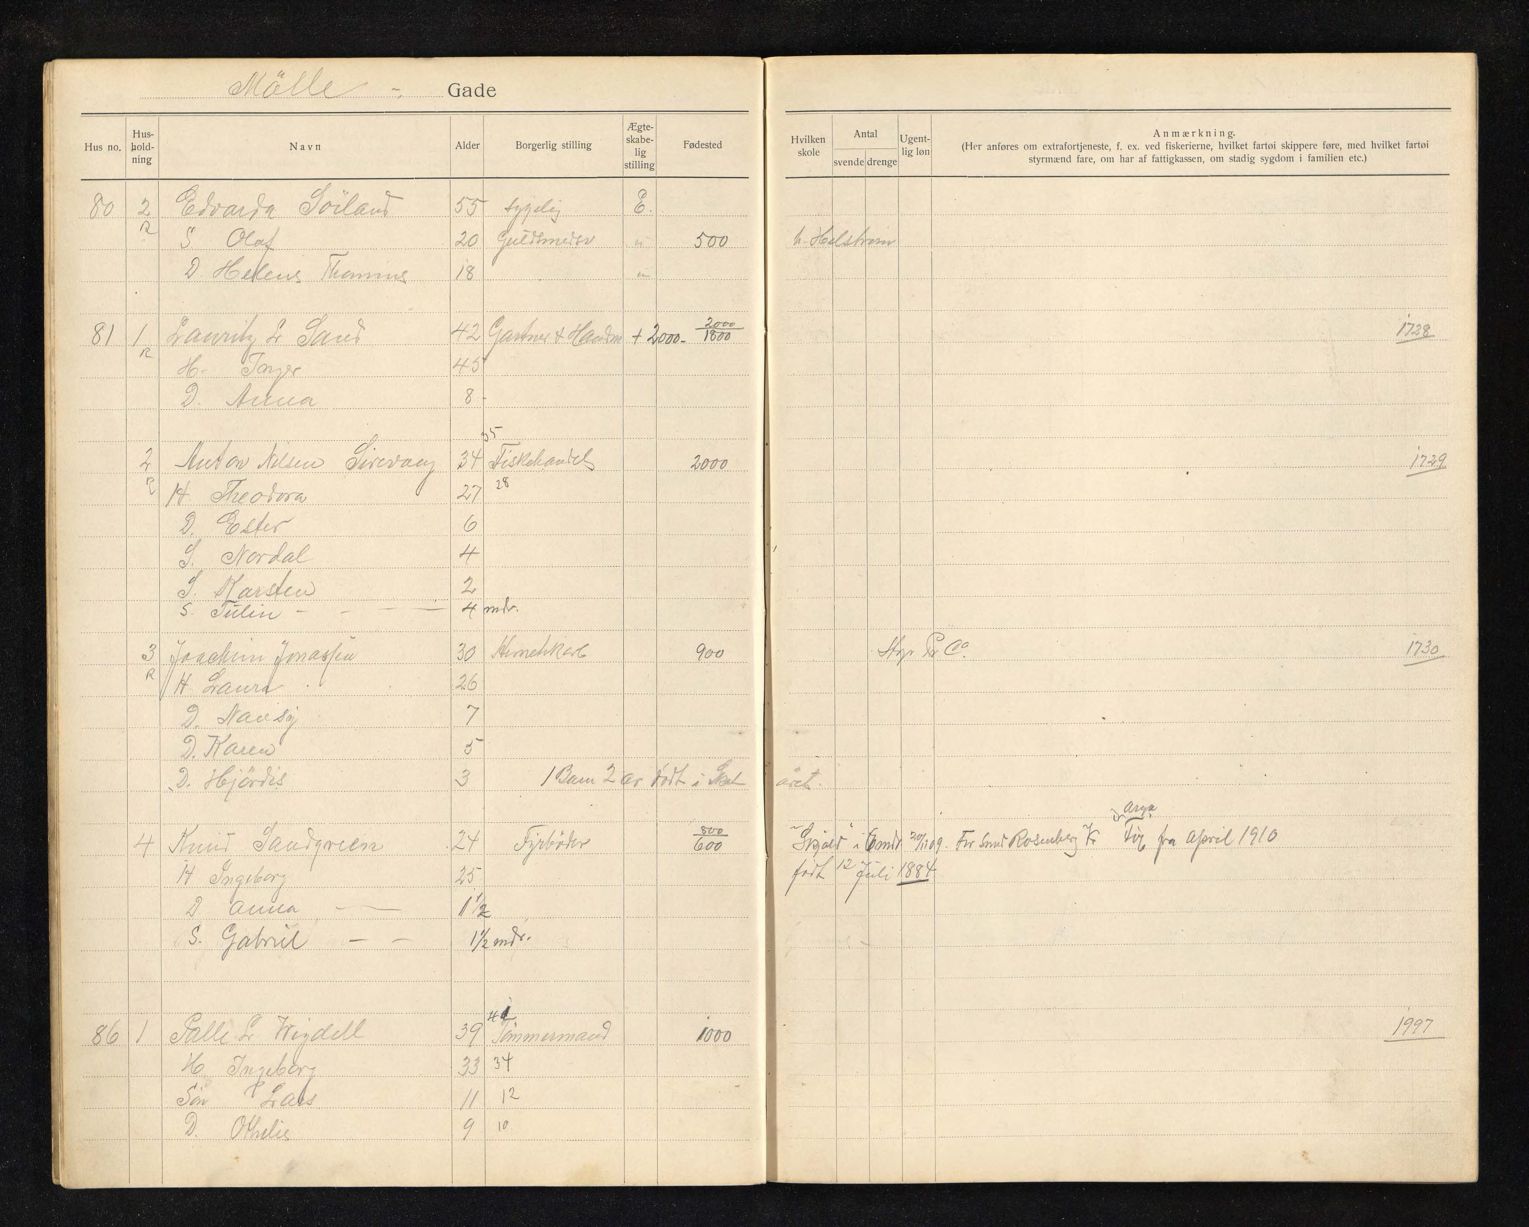 Mölle - Gade
Hus no. Hus-hold-ning Navn Alder Borgerlig stilling Ægte-skabe-lig stilling Fødested Hvilken skole Antal svende drenge Ugent-lig løn Anmærkning.
(Her anføres om extrafortjeneste, f. ex. ved fiskerierne, hvilket fartøi skippere føre, med hvilket fartøi
styrmænd fare, om har af fattigkassen, om stadig sygdom i familien etc.)
80 2 Edvarda Söiland 55 sygelig E.
R S Olaf 20 Guldsmedsv u 500 h. Helstrøm
D. Helene Thomine 18 "
81 1 Lauritz L Sand 42 Gartner & Handm + 2000- 2000/1800 1728
R H. Inger 45
D. Anna 8-
35
2 Anton Nilsen Sirevaag 34 Fiskehandel 2000 1729
R H Theodora 27 28
D. Ester 6
S. Nordal 4
S. Karsten 2
S. Tulin - - - 4 mdr.
3 Joachim Jonassen 30 900 Pr Co. 1730
R H Laura 26
D. Nansy 7
D. Karen 5
D. Hjördis 3 1 Barn 2 år født i Skat året.
Arga
4 Knud Sandgreen 24 Fyrbøter 800/600 "Skjold" i 6 mdr 20/11 09. Rosenberg fra April 1910
H Ingeborg 25 født 12 Juli 1884
D Anna - - 1 1/2
S. Gabriel - - 1 1/2 mdr.
86 1 Palle L Weydell 39 Tömmermand 1000 1997
H Ingeborg 33 34
Sön Lars 11 12
D. Othelie 9 10